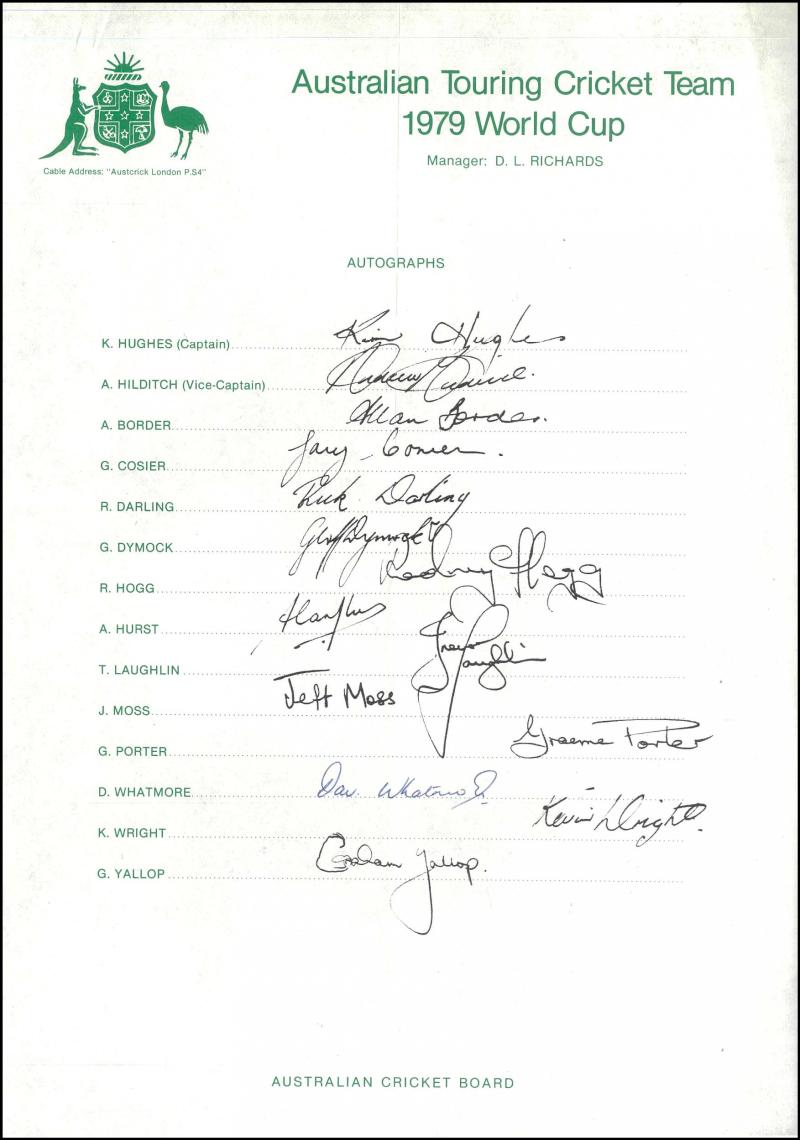 Australian Touring Cricket Team
1979 World Cup
Manager: D. L. RICHARDS
Cable Address: "Austcrick London P.S4"
AUTOGRAPHS
K. HUGHES (Captain) Kim Hughes
A. HILDITCH (Vice-Captain) Andrew
A. BORDER Allan Border.
G. COSIER Gary Cosier.
R. DARLING Rick Darling
G. DYMOCK Geoff Dymock
R. HOGG Rodney Hogg
A. HURST
T. LAUGHLIN Trevor Laughlin
J. MOSS Jeff Moss
G. PORTER Graeme Porter
D. WHATMORE Dav Whatmore
K. WRIGHT Kevin Wright.
G. YALLOP Graham Yallop.
AUSTRALIAN CRICKET BOARD